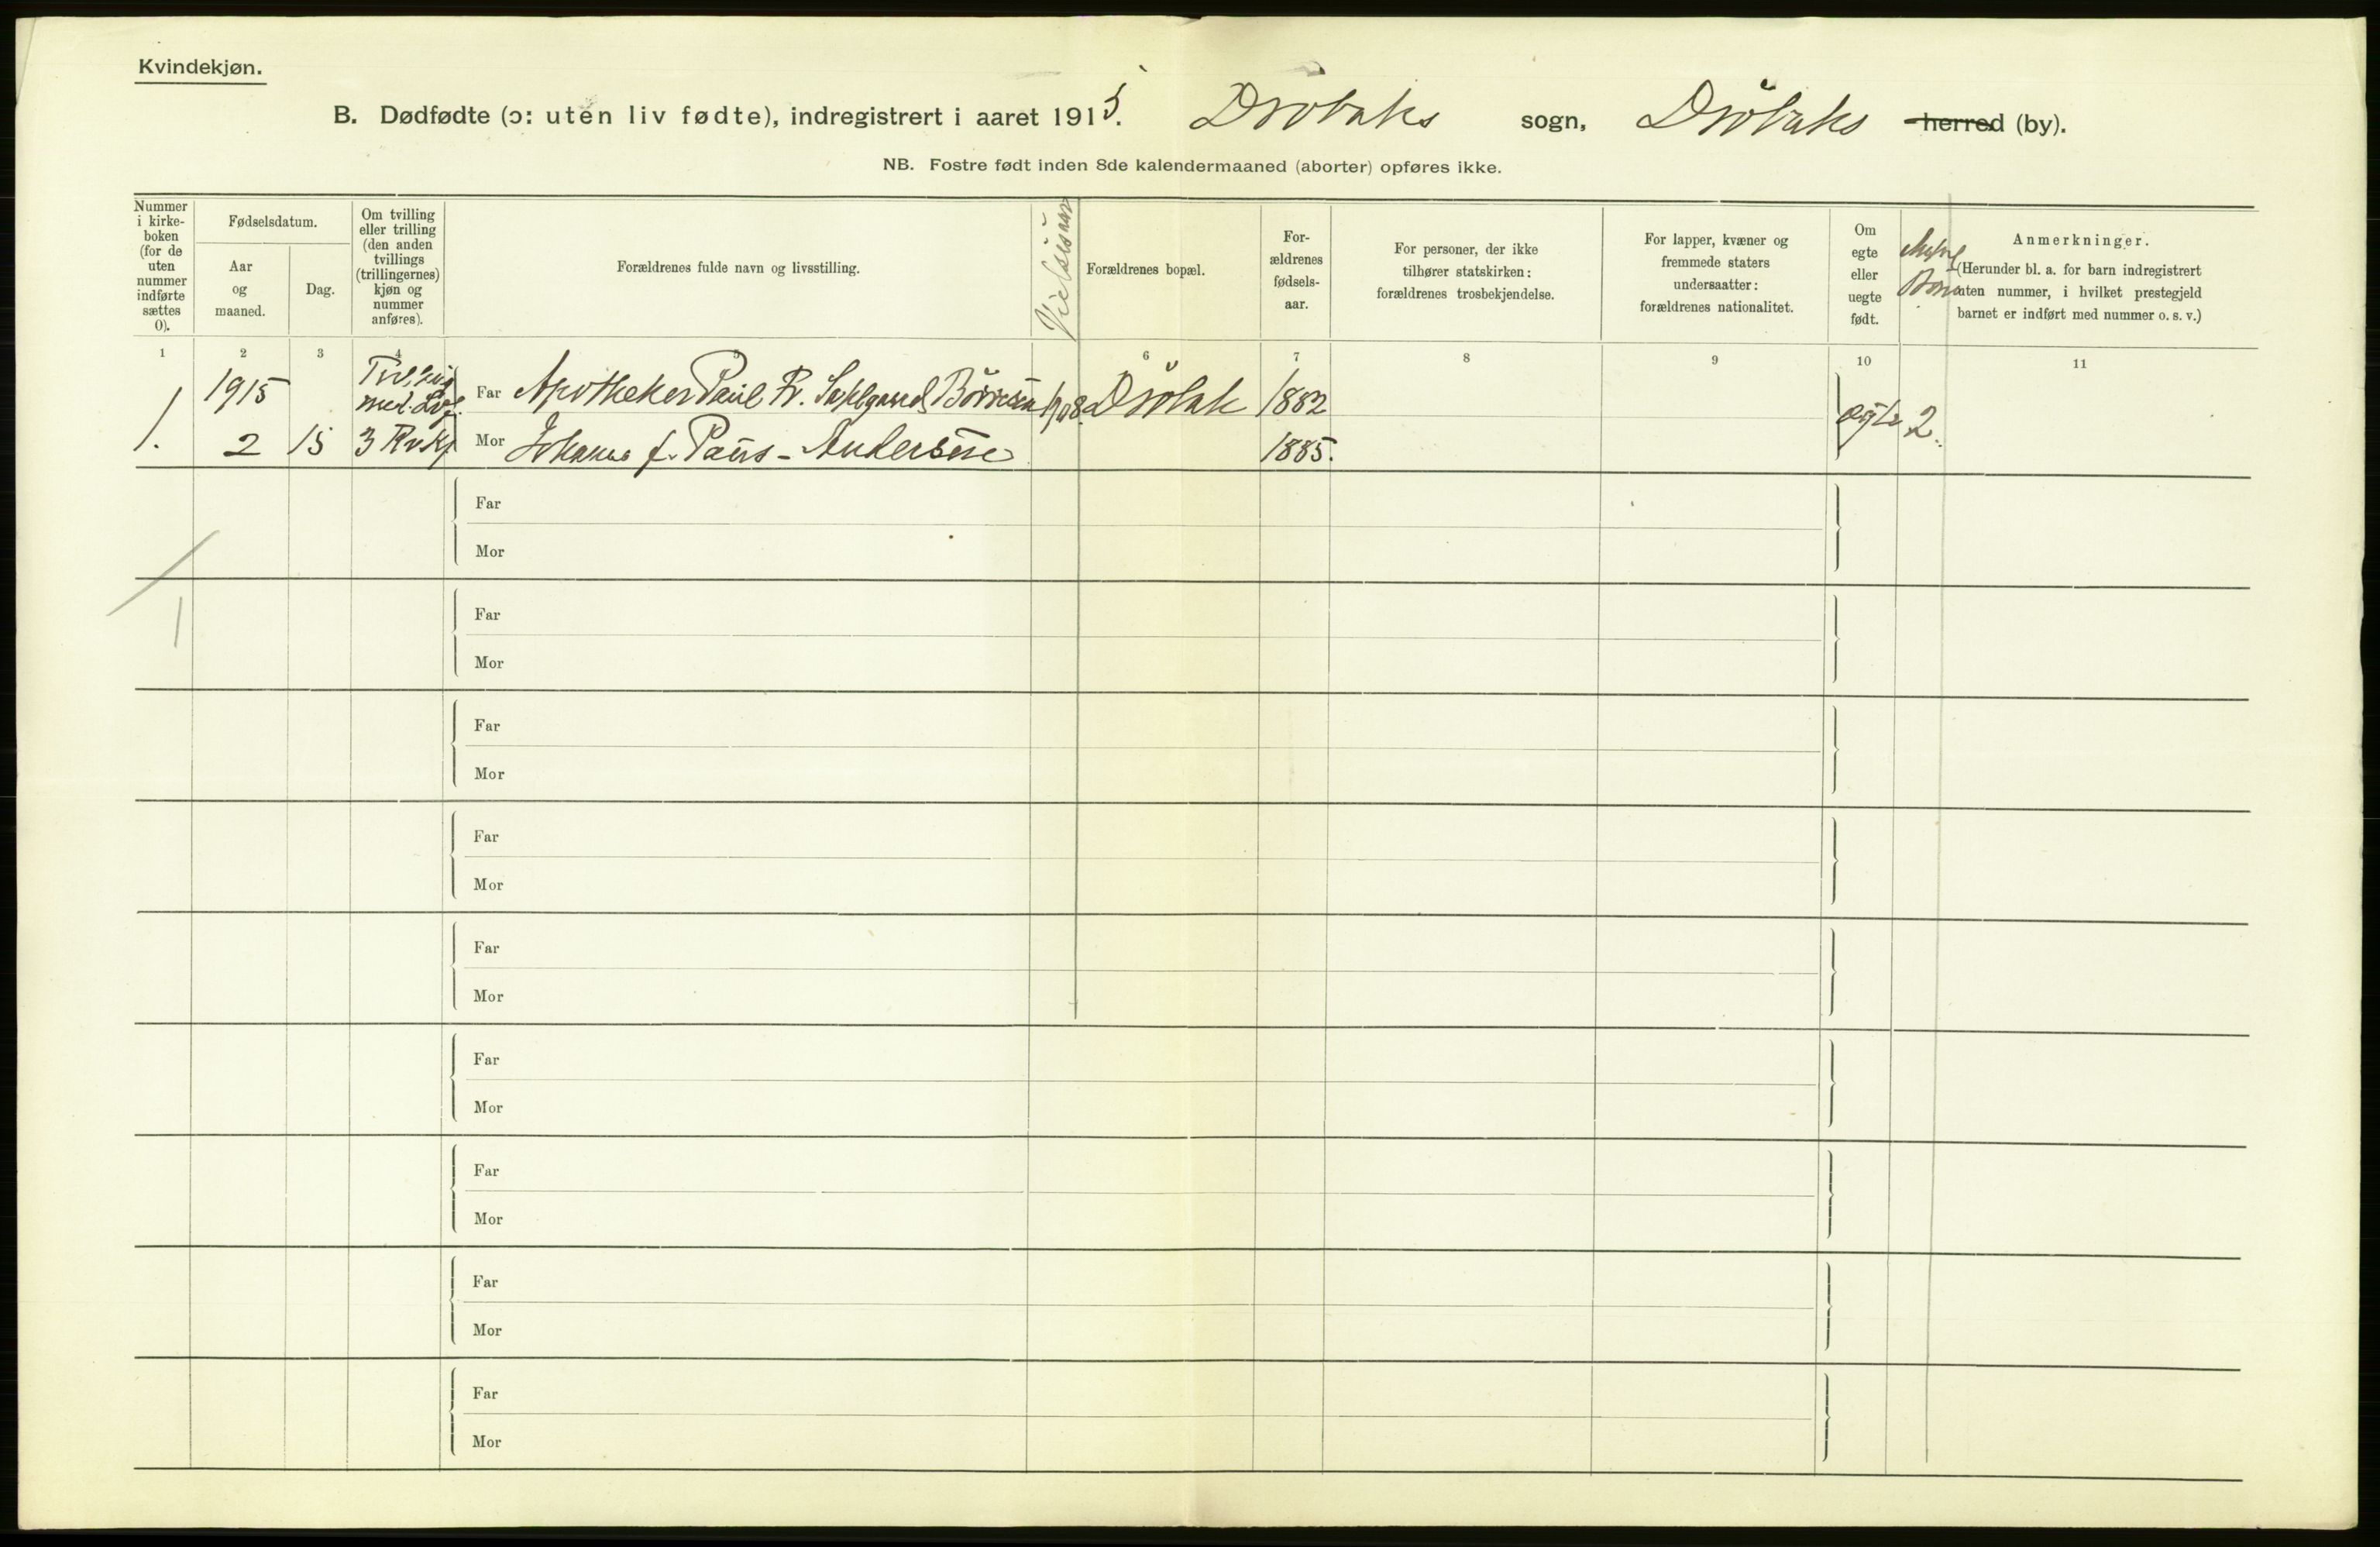 Kvindekjøn.
B. Dødfødte (ɔ: uten liv fødte), indregistrert i aaret 1915. Drøbaks sogn, Drøbaks herred (by).
NB. Fostre født inden 8de kalendermaaned (aborter) opføres ikke.
Nummer
i kirke-
boken
(for de
uten
nummer
indførte
sættes
0).
Fødselsdatum.
Aar
og
maaned.
Dag.
Om tvilling
eller trilling
(den anden
tvillings
(trillingernes)
kjøn og
nummer
anføres).
Forældrenes fulde navn og livsstilling.
Vielsesaar
Forældrenes bopæl.
For-
ældrenes
fødsels-
aar.
For personer, der ikke
tilhører statskirken:
forældrenes trosbekjendelse.
For lapper, kvæner og
fremmede staters
undersaatter:
forældrenes nationalitet.
Om
egte
eller
uegte
født.
Børn
Anmerkninger.
(Herunder bl. a. for barn indregistrert
uten nummer, i hvilket prestegjeld
barnet er indført med nummer o. s. v.)
1 2 3 4 5 6 7 8 9 10 11
1915 Tvilling Far Apotheker Paul Fr. Børresen 1908. Drøbak 1882
med ægte 2.
1. 2 15 3 Kvkj Mor Johanne f. Paus-Andersen 1885.
Far
Mor
Far
1
Mor
Far
Mor
Far
Mor
Far
Mor
Far
Mor
Far
Mor
Far
Mor
Far
Mor